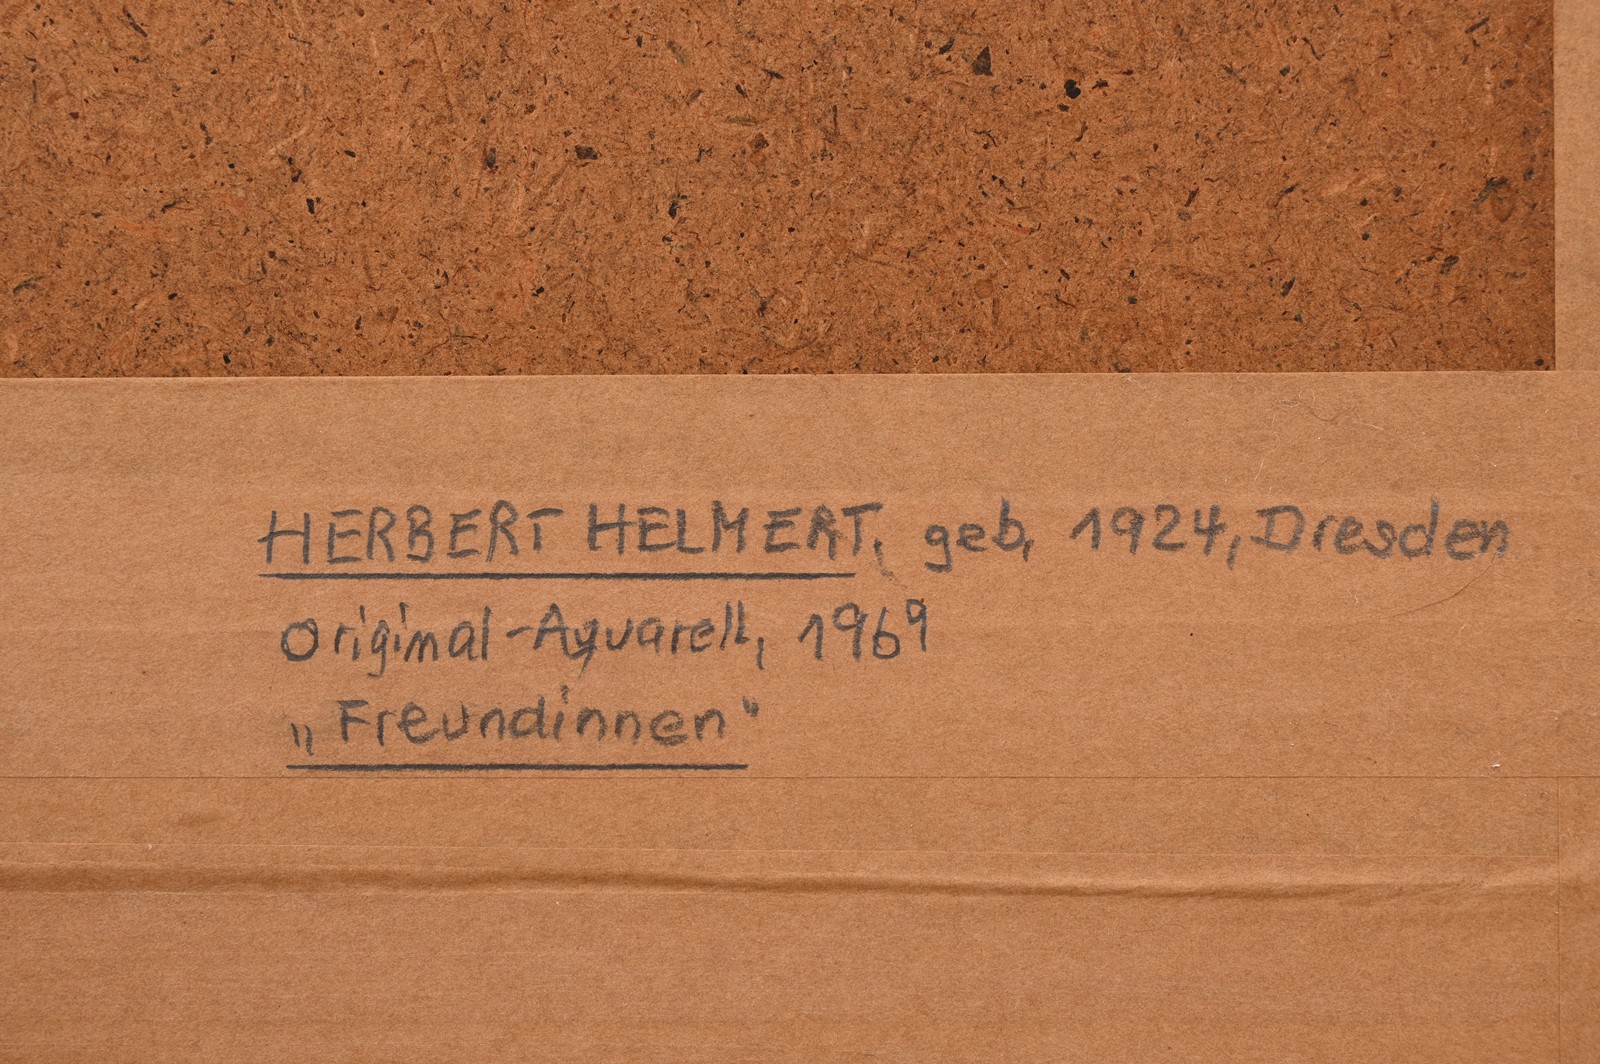 HERBERT HELMERT, geb. 1924, Dresden
Original-Aquarell, 1969
„Freundinnen“